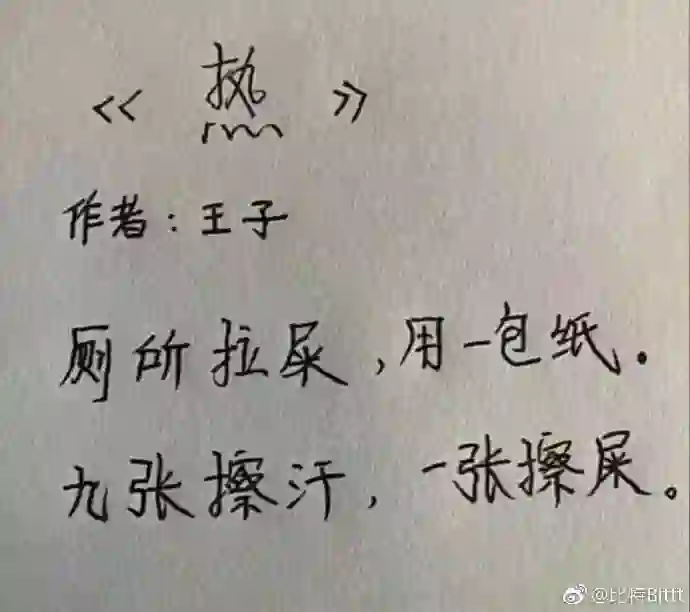 《 热 》
作者：王子
厕所拉屎，用一包纸．
九张擦汗，一张擦屎。
@比特Bittt